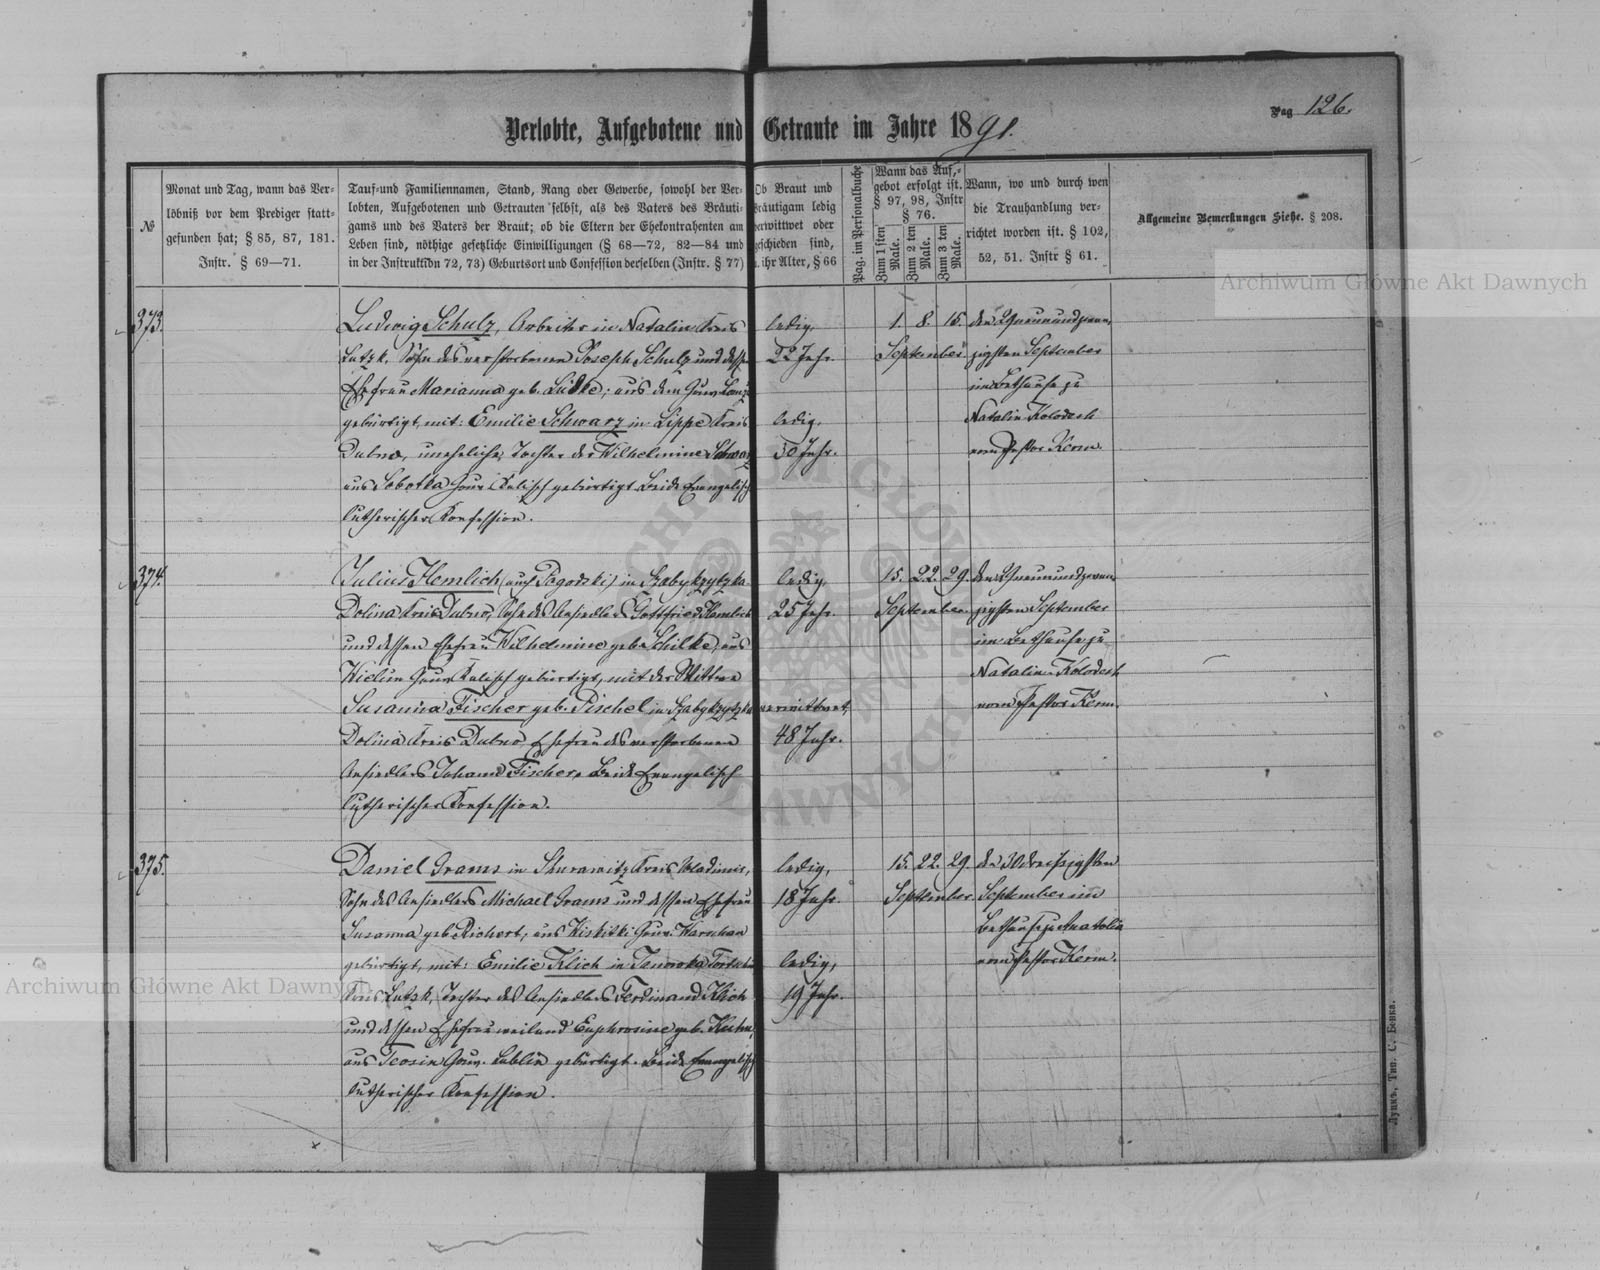 Pag 126.
Verlobte, Aufgebotene und Getraute im Jahre 1891.
№
Monat und Tag, wann das Ver-
löbniß vor dem Prediger statt-
gefunden hat; § 85, 87, 181.
Instr. § 69—71.
Tauf- und Familiennamen, Stand, Rang oder Gewerbe, sowohl der Ver-
lobten, Aufgebotenen und Getrauten selbst, als des Vaters des Bräuti-
gams und des Vaters der Braut; ob die Eltern der Ehekontrahenten am
Leben sind, nöthige gesetzliche Einwilligungen (§ 68—72, 82—84 und
in der Instruktion 72, 73) Geburtsort und Confession derselben (Instr. § 77)
Ob Braut und
Bräutigam ledig
verwittwet oder
geschieden sind,
u. ihr Alter, § 66
Pag. im Personalbuche
Wann das Auf-
gebot erfolgt ist.
§ 97, 98, Instr
§ 76.
Zum 1 sten Male.
Zum 2 ten Male.
Zum 3 ten Male.
Wann, wo und durch wen
die Trauhandlung ver-
richtet worden ist. § 102,
52, 51. Instr § 61.
Allgemeine Bemerkungen Siehe. § 208.
373.
Ludwig Schulz, Arbeiter in Natalin Kreis
Lutzk, Sohn des verstorbenen Joseph Schulz und dessen
Ehefrau Marianna geb. Lüdke; aus dem Gouv.
gebürtigt, mit: Emilie Schwarz in Lippe Kreis
Dubno, uneheliche Tochter der Wilhelmine Schwarz
aus Sobotka Gouv. Kalisch gebürtigt. Beide Evangelisch
lutherischer Konfession.
ledig,
22 Jahr.
ledig,
30 Jahr.
1. 8. 15.
September
den 29 neunundzwan-
zigsten September
im Bethause zu
Natalin Kolodesh
vom Pastor Kerm.
374.
Julius Hemlich (auch Pogorski) in
Dolina Kreis Dubno, Sohn des Ansiedlers Gottfried Hemlich
und dessen Ehefrau Wilhelmine geb. Schilke, aus
Wielun Gouv. Kalisch gebürtigt, mit der Wittwe
Susanna Fischer geb. Pischel in
Dolina Kreis Dubno, Ehefrau des verstorbenen
Ansiedlers Johann Fischer. Beide Evangelisch
lutherischer Konfession.
ledig,
25 Jahr.
verwittwet,
48 Jahr.
15. 22. 29.
September
den 29 neunundzwan-
zigsten September
im Bethause zu
Natalin-Kolodesh
vom Pastor Kerm.
375.
Daniel Grams in Skurawitz Kreis Wladimir,
Sohn des Ansiedlers Michael Grams und dessen Ehefrau
Susanna geb. Richert, aus Wiskitki Gouv. Warschau
gebürtigt, mit: Emilie Klich in
Kreis Lutzk, Tochter des Ansiedlers Ferdinand Klich
und dessen Ehefrau weiland Euphrosine geb. Kuhn,
aus Teosin Gouv. Lublin gebürtigt. Beide Evangelisch
lutherischer Konfession.
ledig,
18 Jahr.
ledig,
19 Jahr.
15. 22. 29.
September
den 30 dreißigsten
September im
Bethause zu Anatolia
vom Pastor Kerm.
Луцкъ, Тип. С. Бенка.
Archiwum Główne Akt Dawnych
Archiwum Główne Akt Dawnych